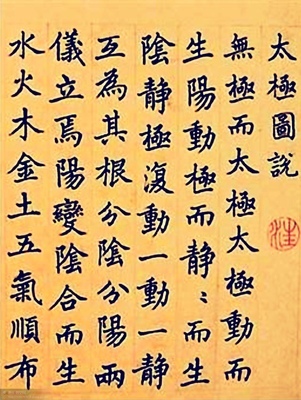 太極圖說
無極而太極太極動而
生陽動極而靜〻而生
陰靜極復動一動一靜
互為其根分陰分陽兩
儀立焉陽變陰合而生
水火木金土五氣順布